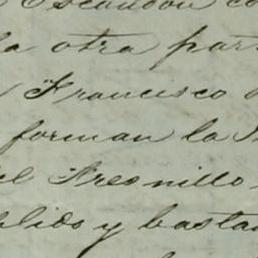 Escandon co
la otra par
Francisco
forman la
el Fresnillo
lido y basta